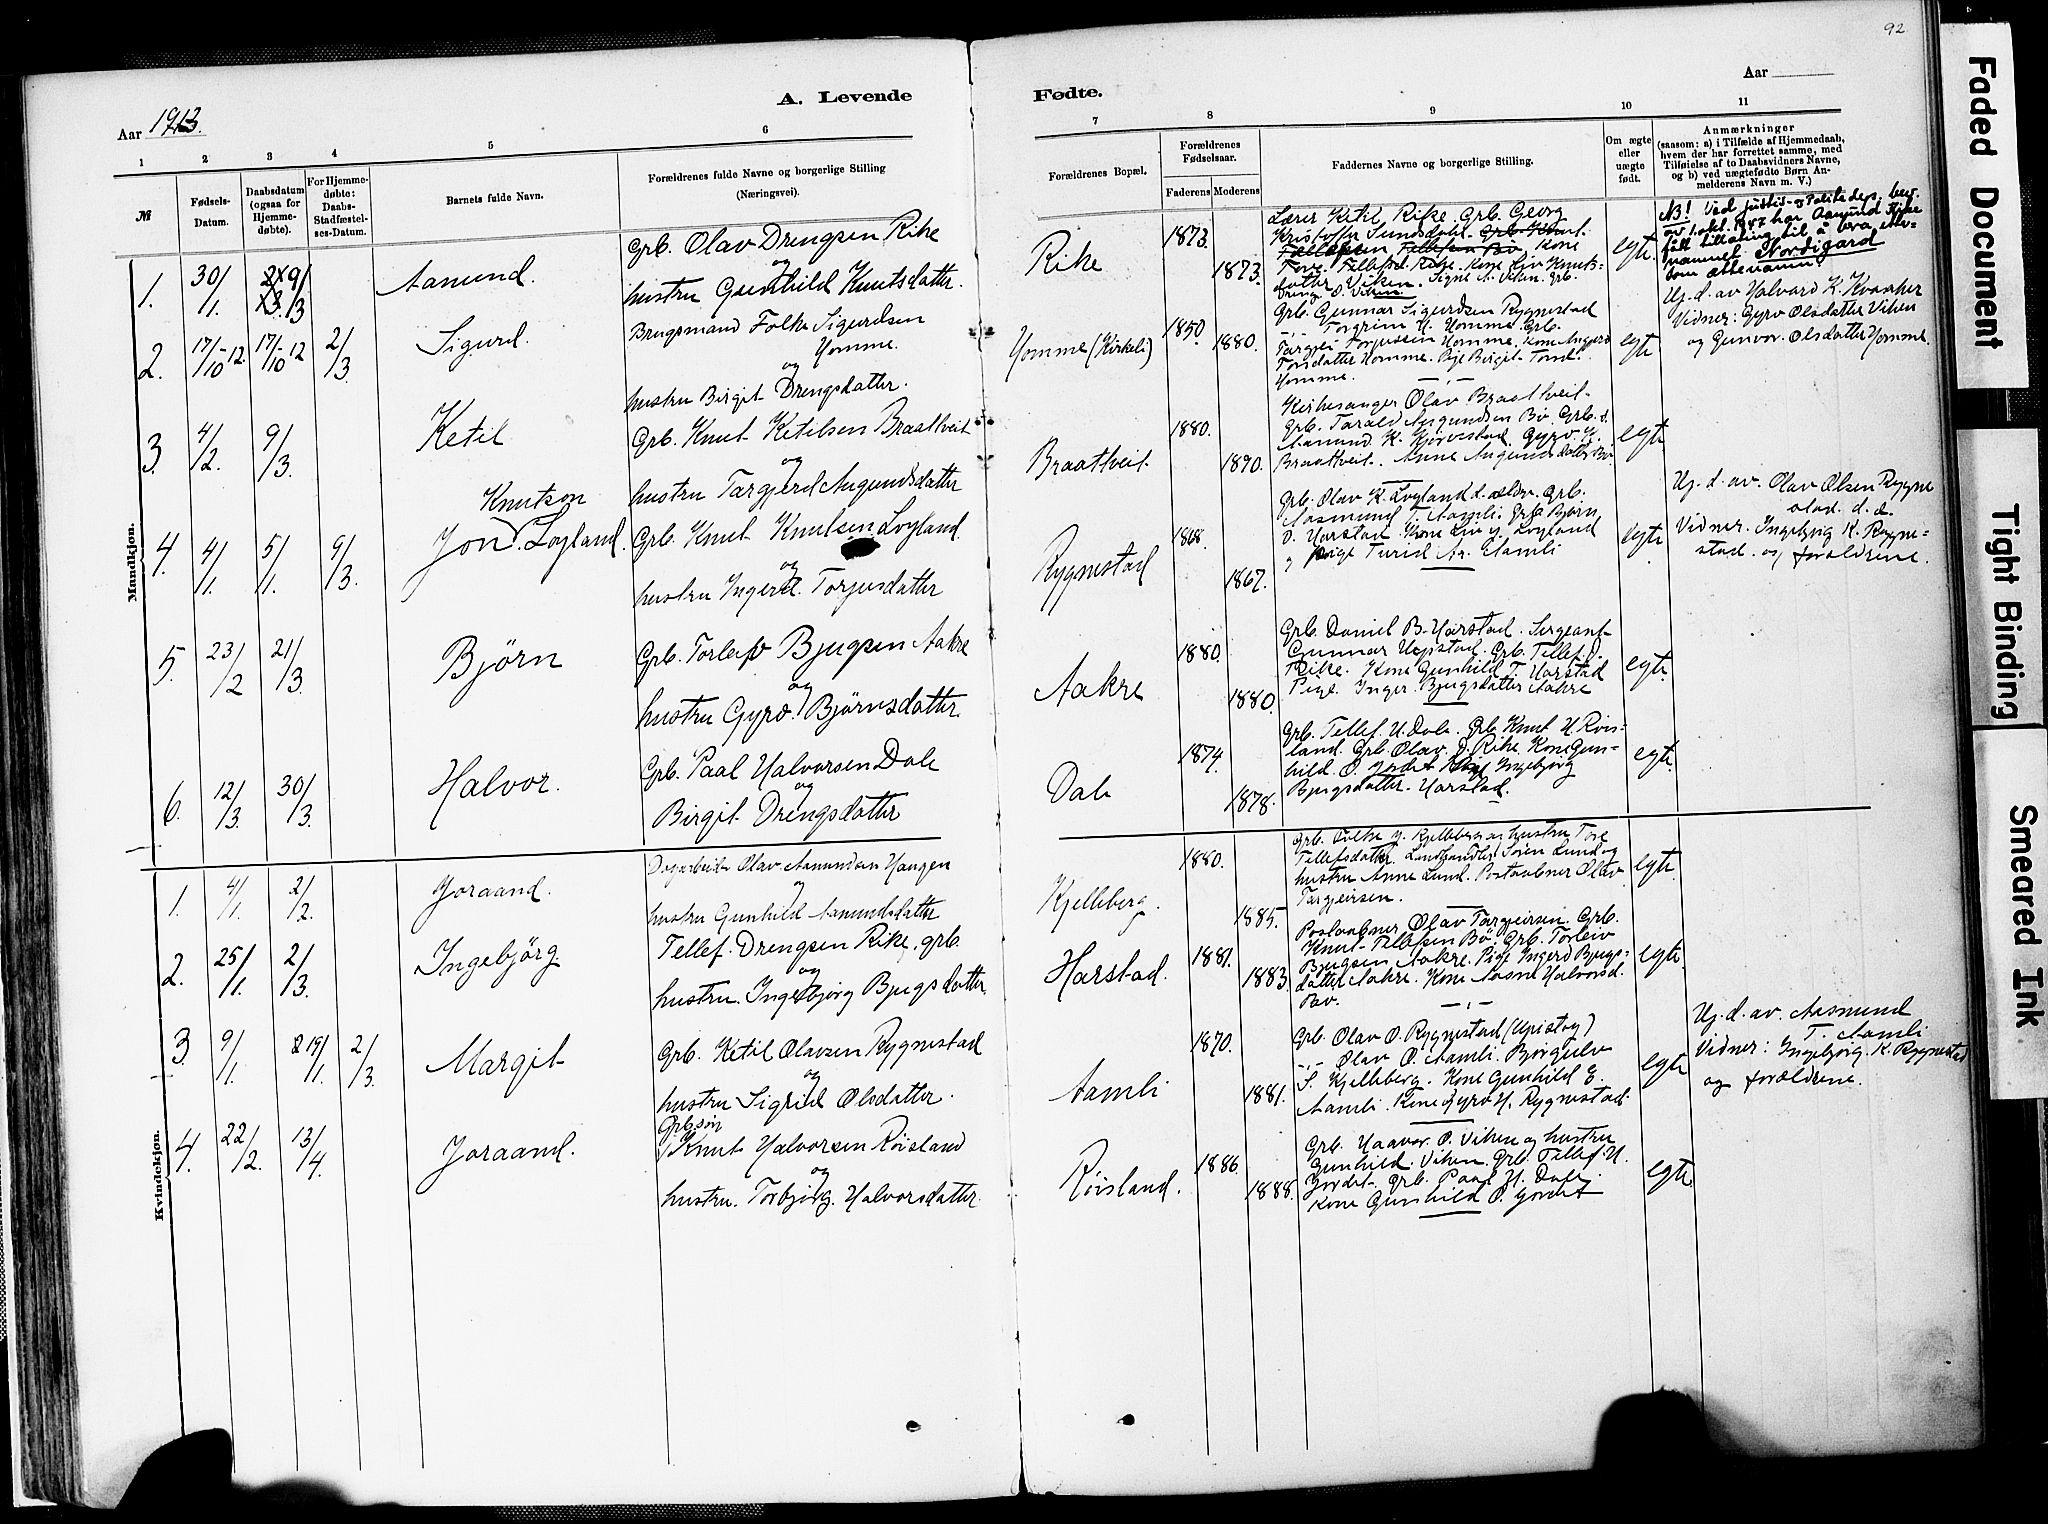 92
Aar 1913.
A. Levende
Fødte.
Aar
1 2 3 4 5 6 7 8 9 10 11
№
Fødsels-
Datum.
Daabsdatum
(ogsaa for
Hjemme-
døbte).
For Hjemme-
døbte:
Daabs-
Stadfæstel-
ses-Datum.
Barnets fulde Navn.
Forældrenes fulde Navne og borgerlige Stilling
(Næringsvei).
Forældrenes Bopæl.
Forældrenes
Fødselsaar.
Faderens
Moderens
Faddernes Navne og borgerlige Stilling.
Om ægte
eller
uægte
født.
Anmærkninger
(saasom: a) i Tilfælde af Hjemmedaab,
hvem der har forrettet samme, med
Tilføielse af to Daabsvidners Navne,
og b) ved uægtefødte Børn An-
melderens Navn m. V.)
Mandkjøn.
1. 30/1. Aamund.
Grb. Olav Drengsen Rike
og
hustru Gunhild Knutsdatter.
Rike
1873.
1873.
Lærer Ketil Rike. Grb. Georg
egte.
NB! Ved justis- og Politidep. bev.
av 1. okt. 1947 har Aamund Rike
fått tillating til å bra etter-
namnet Nordigard
som ættenamn.
2. 17/10-12. 17/10-12 2/3. Sigurd.
Brugsmand Folke Sigurdsen
Homme.
og
hustru Birgit Drengsdatter.
Homme (Kirkeli)
1850.
1880.
Grb. Gunnar Sigurdsen Rygnestad
Torgrim H. Homme. Grb.
Targjei Torjussen Homme. Kone Angjerd
Torsdatter Homme. Pige Birgit Torsd.
Homme.
egte
Hj. d. av Halvard K. Kvaaher
Vidner: Gyro Olsdatter Viken
og Gunvor Olsdatter Homme.
3. 4/2. 9/3. Ketil
Grb. Knut Ketilsen Braattveit
og
hustru Targjerd Augundsdatter
Braattveit.
1880.
1890.
Kirkesanger Olav Braattveit.
Grb. Tarald Augundsen Bö. Grb. s.
Aamund K. Gjervestad. Gyro G.
Braattveit. Anne Augundsdatter Bö
egte
4. 4/1. 5/1. 9/3.
Knutson
Jon Loyland.
Grb. Knut Knutsen Loyland.
og
hustru Ingerd Torjusdatter
Rygnestad
1868.
1867.
Grb. Olav K. Loyland d. ældre. Grb.
Aasmund T. Aamli. Grb. Björn
O. Harstad. Kone Liv G. Loyland
egte
Hj. d. av. Olav Olsen Rygne
stad. d. e.
Vidner. Ingebjörg K. Rygne-
stad. og forældrene.
5. 23/2 21/3. Björn
Grb. Torleiv Bjugsen Aakre
og
hustru Gyro. Björnsdatter.
Aakre
1880.
1880.
Grb. Daniel B. Harstad. Sergeant
Gunnar Upstad. Grb. Tellef D.
Rike. Kone Gunhild T. Harstad
Pige. Inger Bjugsdatter Aakre
egte
6. 12/3. 30/3. Halvor.
Grb. Paal Halvorsen Dale
og
Birgit Drengsdatter
Dale
1874.
1878.
Grb. Tellef H. Dale. Grb. Knut H. Röis-
land. Grb. Olav D. Rike. Kone Gun-
hild O. Jordet Pige Ingebjörg
Bjugsdatter. Harstad.
egte.
Kvindekjøn.
1. 4/1. 2/2. Joraand.
Dagarbeider Olav Aamundsen Haugen
og
hustru Gunhild Aamundsdatter
Kjelleberg.
1880.
1885.
Grb. Folke G. Kjelleberg og hustru Tore
Tellefsdatter. Landhandler Sören Lund og
hustru Anne Lund. Postaabner Olav
Targjeirsen.
egte.
2. 25/1. 2/3. Ingebjörg
Tellef. Drengsen Rike. grb.
og
hustru. Ingebjörg Bjugsdatter.
Harstad.
1881.
1883.
Postaabner Olav Targjeirsen. Grb.
Knut Tellefsen Bö. Grb. Torleiv
Bjugsen Aakre. Pige Ingerd Bjugs-
datter Aakre. Kone Aasne Halvorsd.
egte.
3. 9/1. 19/1. 2/3. Margit
Grb. Ketil Olavsen Rygnestad
og
hustru Sigrid Olsdatter.
Aamli
1870.
1881.
Grb. Olav O. Rygnestad (Upistog)
Olav O. Aamli. Börgulv
S. Kjelleberg. Kone Gunhild E.
Aamli. Kone Gyro H. Rygnestad.
egte
Hj. d. av. Aasmund
T. Aamli
Vidner: Ingebjörg. K. Rygnestad
og forældrene.
4. 22/2. 13/4. Joraand.
Grb. søn
Knut Halvorsen Röisland
og
hustru. Torbjörg. Halvorsdatter.
Röisland.
1886
1888.
Grb. Haavor. O. Viken og hustru
Gunhild. Viken. Grb. Tellef H.
Jordet. Grb. Paal H. Dale
Kone Gunhild O. Jordet
egte
Faded Document
Tight Binding
Smeared Ink